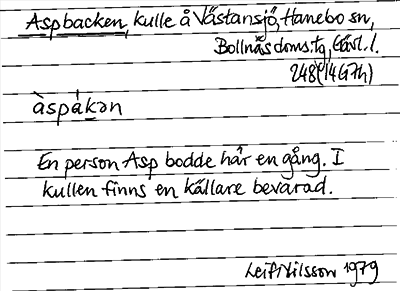 Aspbacken, kulle å Västansjö, Hanebo sn,
Bollnäs doms:tg, Gävl. l.
248 (14G7h)
àspákən
En person Asp bodde här en gång. I
kullen finns en källare bevarad.
Leif Nilsson 1979